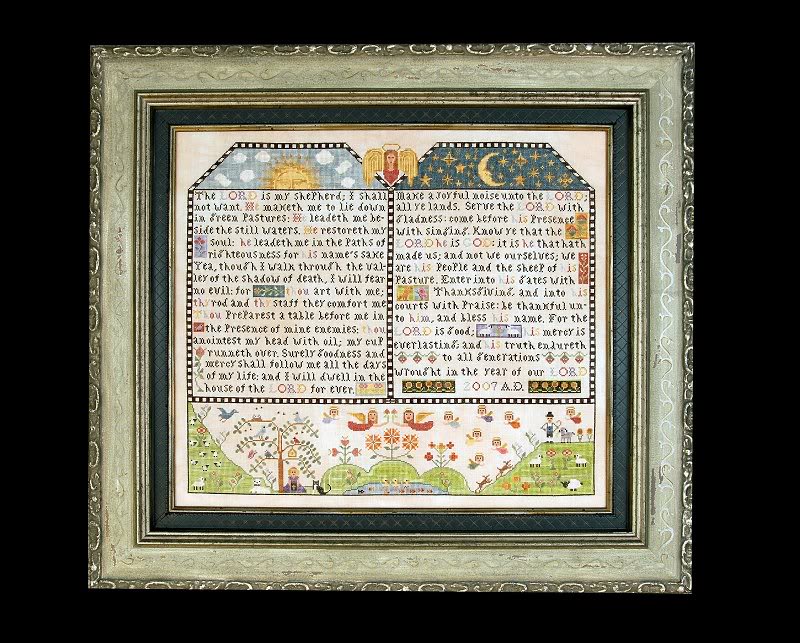 The LORD is my shepherd; I shall
not want. He maketh me to lie down
in green pastures: He leadeth me be-
side the still waters. He restoreth my
soul: he leadeth me in the paths of
righteousness for his name's sake
Yea, though I walk through the val-
ley of the shadow of death, I will fear
no evil: for thou art with me;
thy rod and thy staff they comfort me
Thou preparest a table before me in
the presence of mine enemies: thou
anointest my head with oil; my cup
runneth over. Surely goodness and
mercy shall follow me all the days
of my life: and I will dwell in the
house of the LORD for ever.
Make a joyful noise unto the LORD;
all ye lands. Serve the LORD with
gladness: come before his presence
with singing. Know ye that the
LORD he is GOD: it is he that hath
made us; and not we ourselves; we
are his people and the sheep of his
pasture. Enter into his gates with
Thanksgiving, and into his
courts with praise: be thankful un-
to him, and bless his name. For the
LORD is good; his mercy is
everlasting; and his truth endureth
to all generations
Wrought in the year of our LORD
2007 A.D.